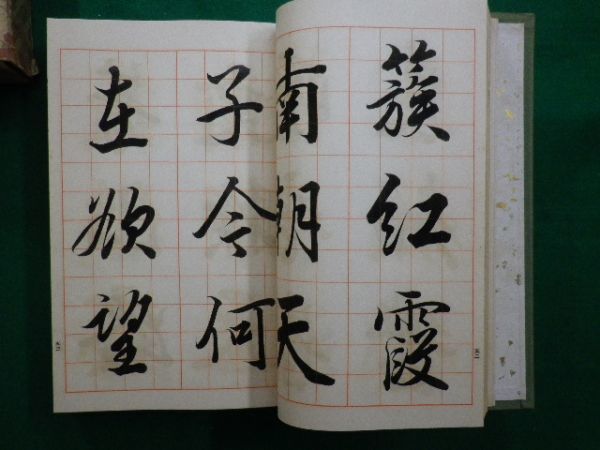 簇红霞
南朝天
子今何
在欲望